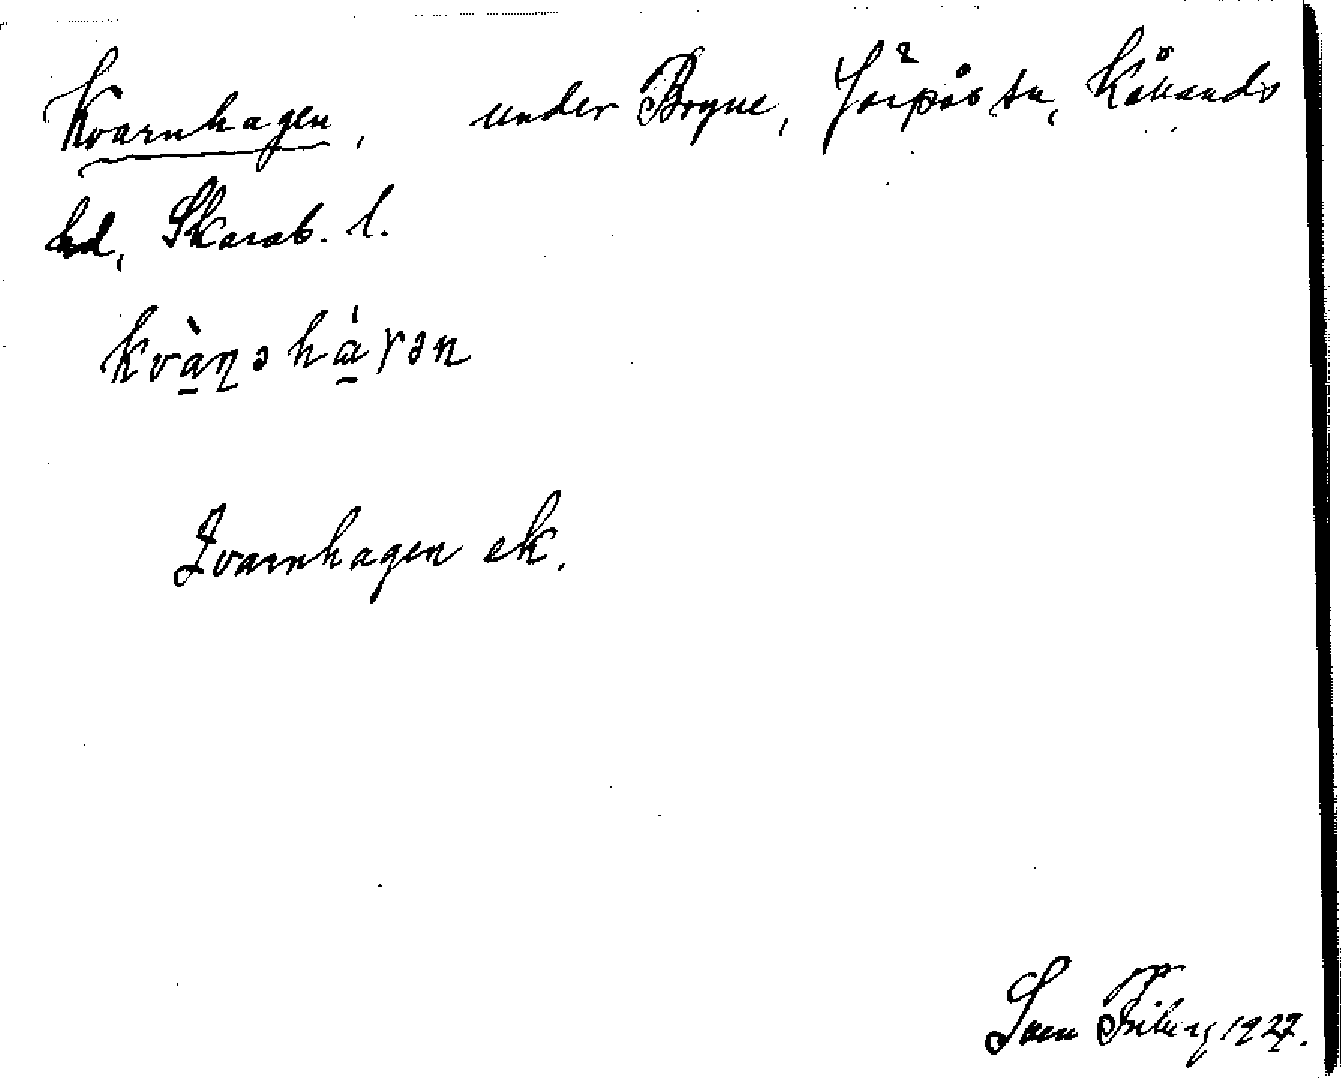 Kvarnhagen, under Bryne, Järpås sn, Kållands
hd, Skarab. l.
kvàɳəhàɣən
Qvarnhagen ek.
Sven Friberg 1927.